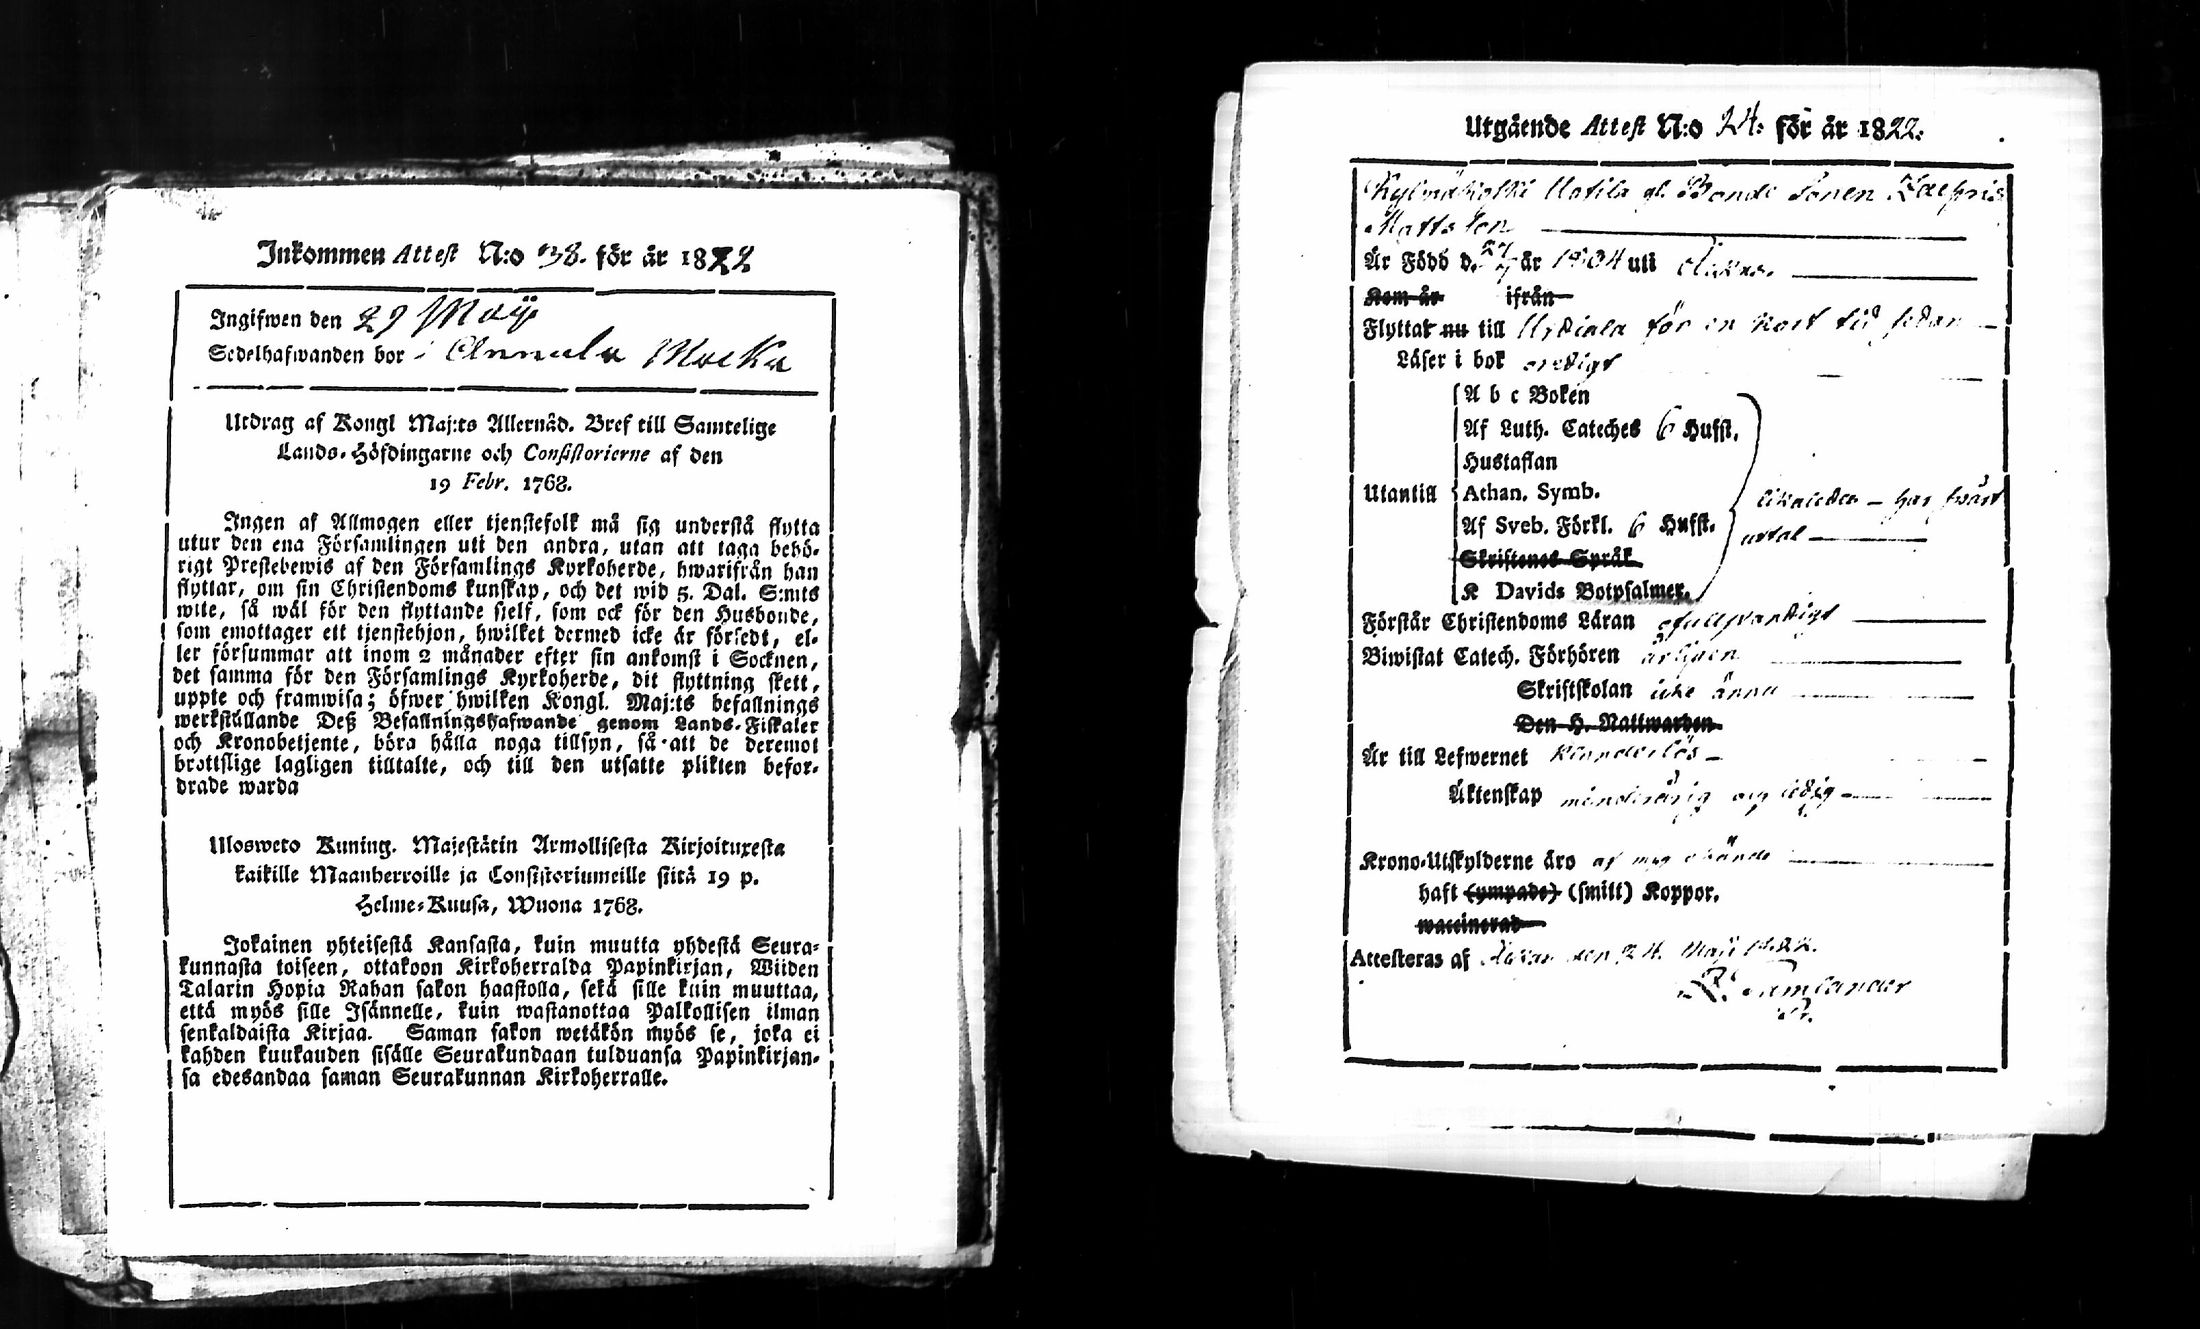 Inkommen Attest N:o 38. för år 1822
Ingifwen den 29 Maji
Sedelhafwanden bor i Annula Macka
Utdrag af Kongl Maj:ts Allernåd. Bref till Samtelige
Lands-Höfdingarne och Consistorierne af den
19 Febr. 1768.
Ingen af Allmogen eller tjenstefolk må sig understå flytta
utur den ena Församlingen uti den andra, utan att taga behö-
rigt Prestebewis af den Församlings Kyrkoherde, hwarifrån han
flyttar, om sin Christendoms kunskap, och det wid 5. Dal. S:mts
wite, så wäl för den flyttande sielf, som ock för den Husbonde,
som emottager ett tjenstehjon, hwilket dermed icke är försedt, el-
ler försummar att inom 2 månader efter sin ankomst i Socknen,
det samma för den Församlings Kyrkoherde, dit flyttning skett,
uppte och framwisa; öfwer hwilken Kongl. Maj:ts befallnings
werkställande Deß Befallningshafwande genom Lands-Fiskaler
och Kronobetjente, böra hålla noga tillsyn, så att de deremot
brottslige lagligen tilltalte, och till den utsatte plikten befor-
drade warda
Ulosweto Kuning. Majestätin Armollisesta Kirjoituxesta
kaikille Maanherroille ja Consistoriumeille siitä 19 p.
Helme-Kuusa, Wuona 1768.
Jokainen yhteisestä Kansasta, kuin muutta yhdestä Seura-
kunnasta toiseen, ottakoon Kirkoherralda Papinkirjan, Wiiden
Talarin Hopia Rahan sakon haastolla, sekä sille kuin muuttaa,
että myös sille Isännelle, kuin wastanottaa Palkollisen ilman
senkaldaista Kirjaa. Saman sakon wetäkön myös se, joka ei
kahden kuukauden sisälle Seurakundaan tulduansa Papinkirjan-
sa edesandaa saman Seurakunnan Kirkoherralle.
Utgående Attest N:o 24. för år 1822.
Kylmäkoski Uotila gl. Bonde Sonen
Matts Son
Är Född d. 27 år 1804 uti
Kom år ifrån
Flyttat nu till Urdiala för en kort tid sedan
Läser i bok oredigt
A b c Boken
Af Luth. Cateches 6 Hufst.
Hustaflan
Utantill Athan. Symb.
likaledes - har swårt
Af Sveb. Förkl. 6 Hufst.
uttal
Skriftenes Språk
K Davids Botpsalmer.
Förstår Christendoms Läran ofullständigt
Biwistat Catech. Förhören årligen
Skriftskolan icke ännu
Den H. Nattwarden
Är till Lefwernet klanderlös
Äktenskap minderårig och ledig
Krono-Utskylderne äro af mig okände
haft (ympade) (smitt) Koppor.
waccinerad
Attesteras af den 24. Maji 1822.